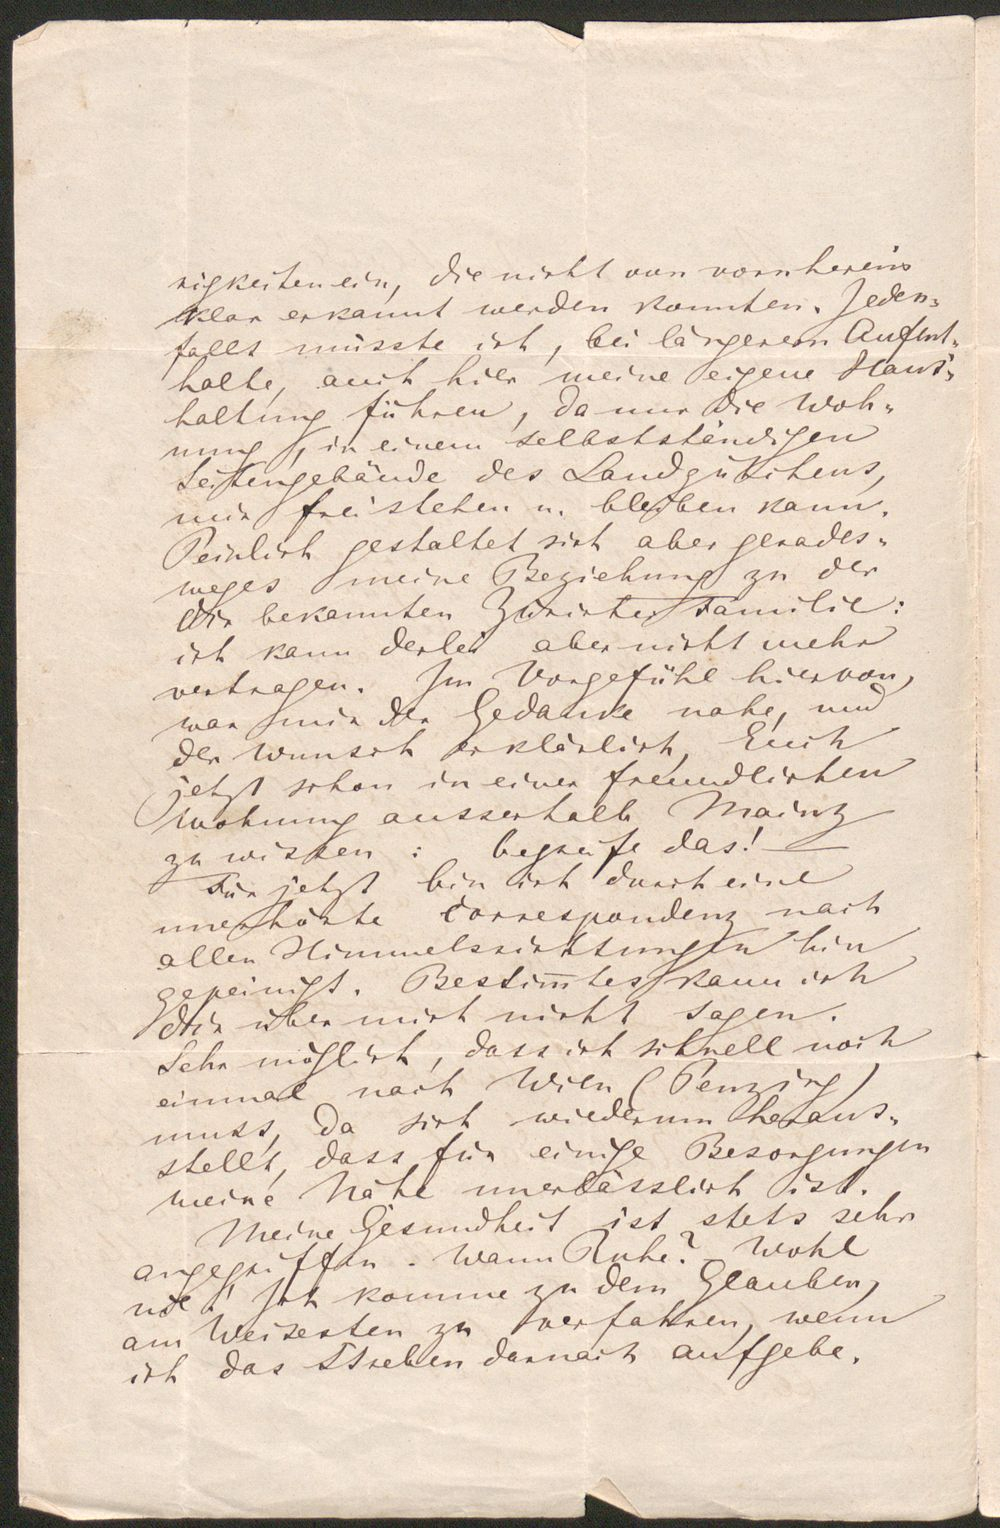 rigkeiten ein, die nicht von vornherein
klar erkannt werden konnten. Jeden=
falls müsste ich, bei längerem Aufent=
halte, auch hier meine eigene Haus=
haltung führen, da nur die Woh=
nung, in einem selbstständigen
Seitengebäude des Landgütchens,
mir frei stehen u. bleiben kann.
Peinlich gestaltet sich aber gerades=
weges meine Beziehung zu der
Dir bekannten Züricher Familie:
ich kann derlei aber nicht mehr
vertragen. Im Vorgefühl hiervon,
war mir der Gedanke nahe, und
der Wunsch erklärlich, Euch
jetzt schon in einer freundlichen
Wohnung ausserhalb Mainz
zu wissen: begreife das! —
Für jetzt bin ich durch eine
unerhörte Correspondenz nach
allen Himmelsrichtungen hin
gepeinigt. Bestim̅tes kann ich
Dir über mich nicht sagen.
Sehr möglich, dass ich schnell noch
einmal nach Wien (Penzing)
muss, da sich wiederum heraus=
stellt, dass für einige Besorgungen
meine Nähe unerlässlich ist.
Meine Gesundheit ist stets sehr
angegriffen. Wann Ruhe? Wohl
nie! Ich komme zu dem Glauben,
am Weisesten zu verfahren, wenn
ich das Streben darnach aufgebe.